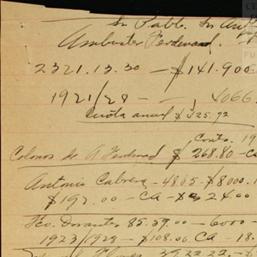 Sn Pabl.
Armbuster Ferdinand.
2321.13.30 — $141.900
1921/29 — — 4066.
Cuota anual $325.92
Conto. 19
Colonos de A. Ferdinad $ 268.80 - Ca
Antonio Cabrera - 48.05 - $8000.
$192.00 - CA - 24.00
Fco. Dorantes 85.39.00 - 6000 -
1923/1929 - $108.00 CA - 18.